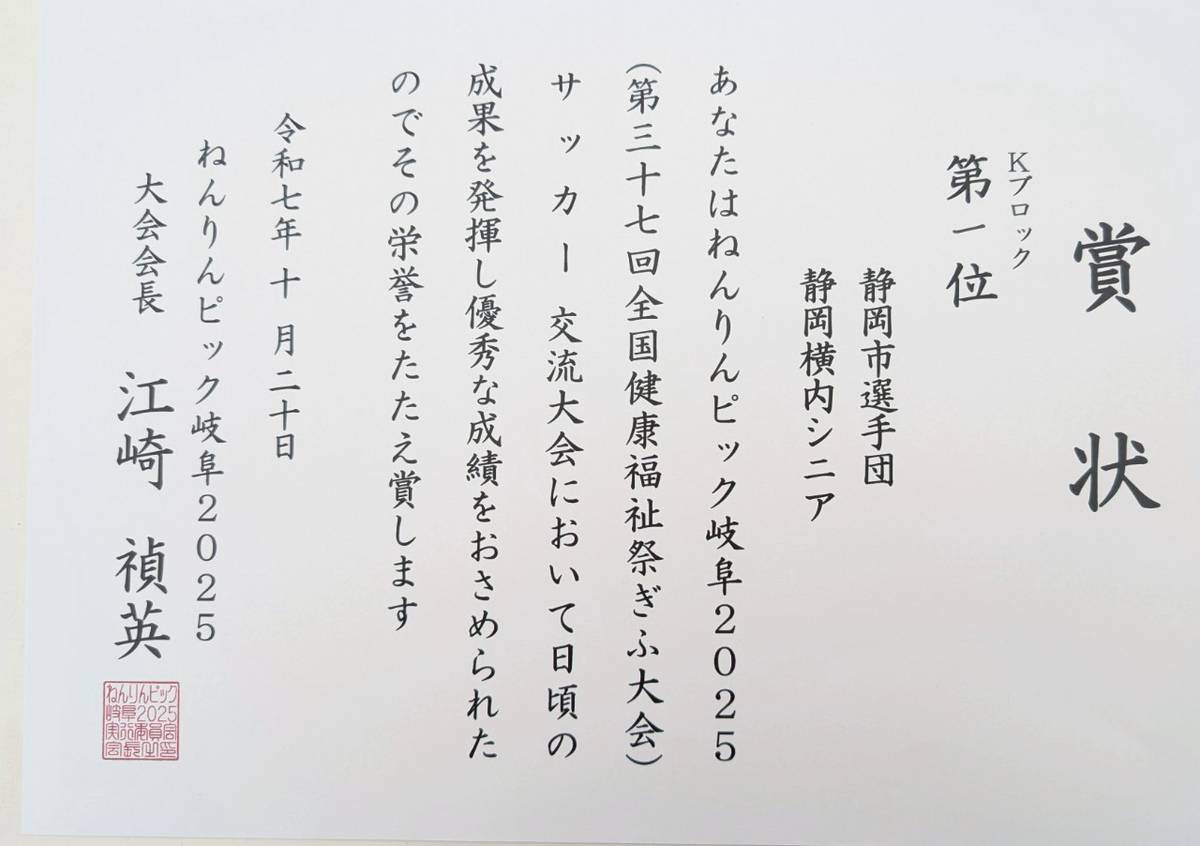 賞状
Kブロック
第一位
静岡市選手団
静岡横内シニア
あなたはねんりんピック岐阜2025
(第三十七回全国健康福祉祭ぎふ大会)
サッカー交流大会において日頃の
成果を発揮し優秀な成績をおさめられた
のでその栄誉をたたえ賞します
令和七年十月二十日
ねんりんピック岐阜2025
大会会長 江崎禎英
ねんりんピック
岐阜2025